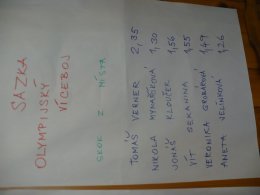 SAZKA
OLYMPIJSKÝ
VÍCEBOJ
SKOK Z MÍSTA
TOMÁŠ VERNER 2,35
NIKOLA MYNAŘÍKOVÁ 1,30
JONÁŠ KLOUČEK 1,56
VÍT SEKANINA 1,55
VERONIKA 1,49
ANETA VELÍNKOVÁ 1,26